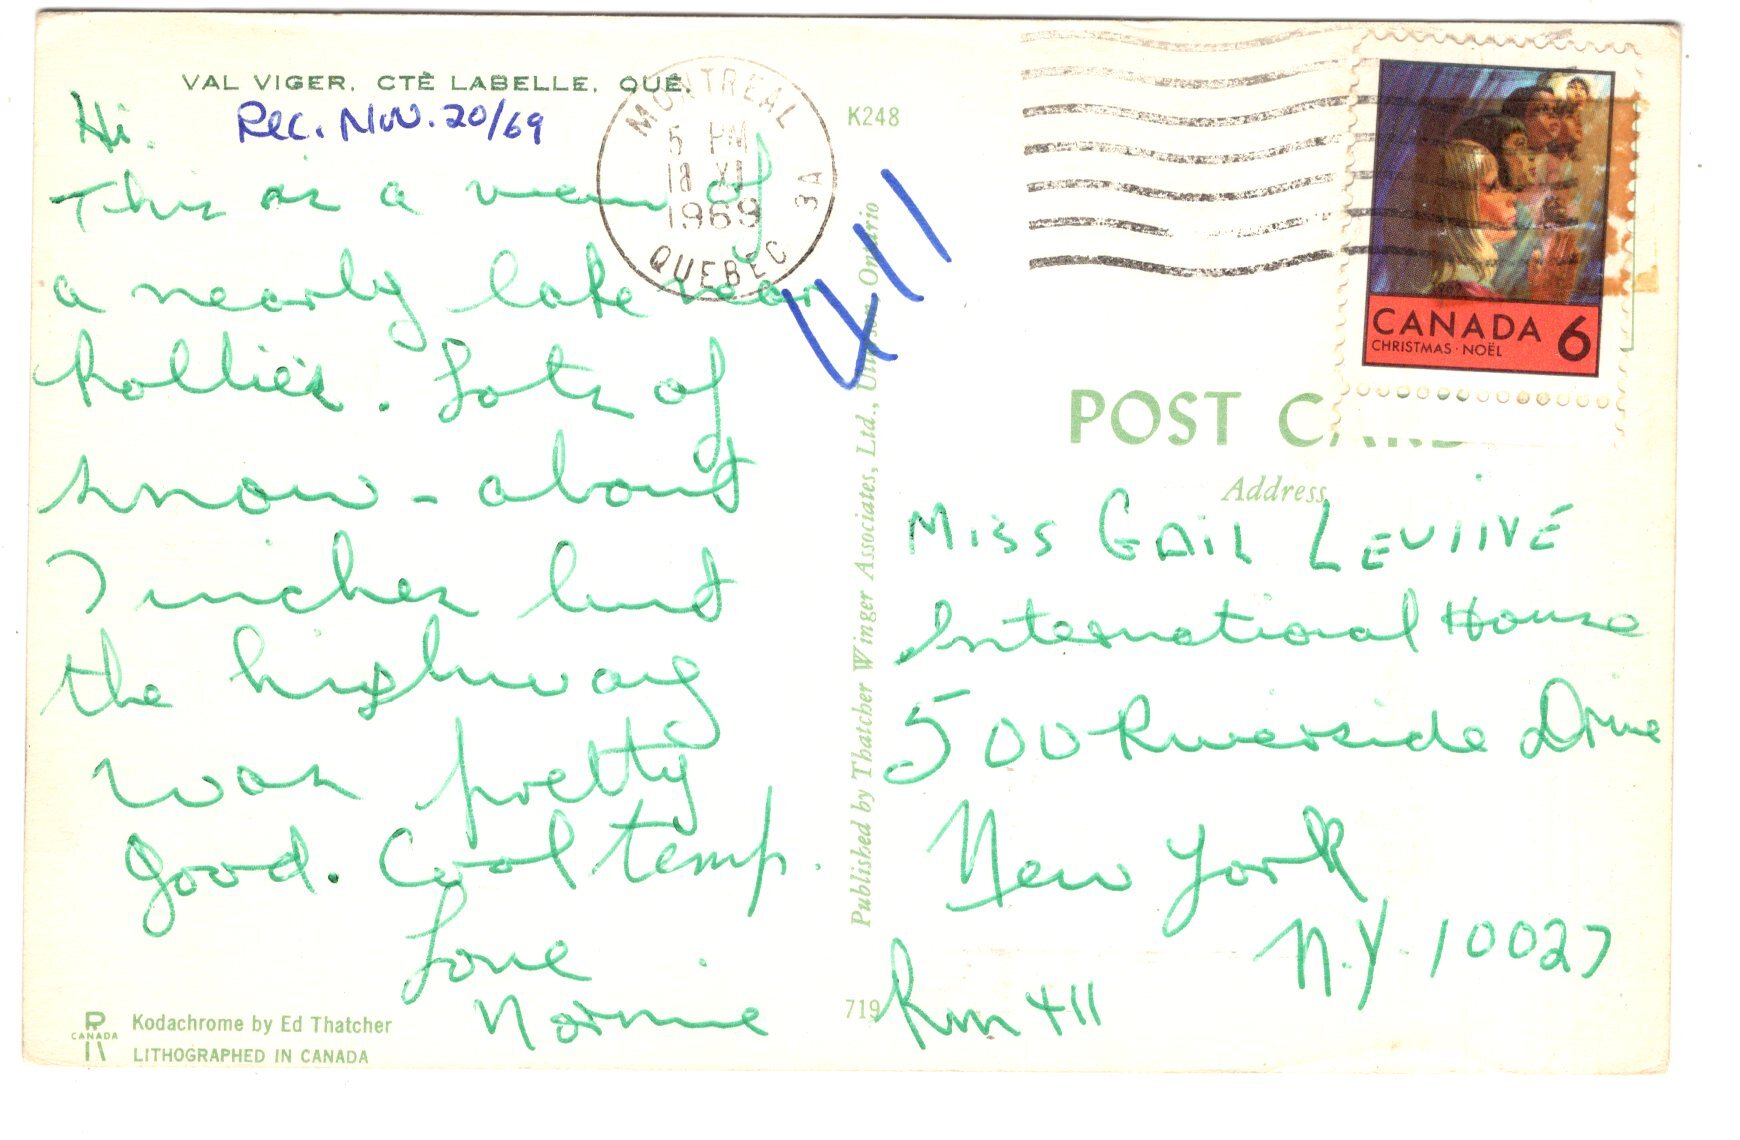 VAL VIGER, CTÈ LABELLE, QUÉ.
Rec. Nov. 20/69
Hi.
This is a view of
a nearby lake near
Rollies. Lots of
snow - about
7 inches but
the highway
was pretty
good. Cool temp.
Love
Normie
Kodachrome by Ed Thatcher
LITHOGRAPHED IN CANADA
R
CANADA
K248
719
Published by Thatcher Winger Associates, Ltd., Ontario
411
MONTREAL
5 PM
18 XI
1969
3A
QUEBEC
CANADA 6
CHRISTMAS · NOËL
POST CARD
Address
MISS GAIL LEVINE
International House
500 Riverside Drive
New York
N.Y. 10027
Rm 411